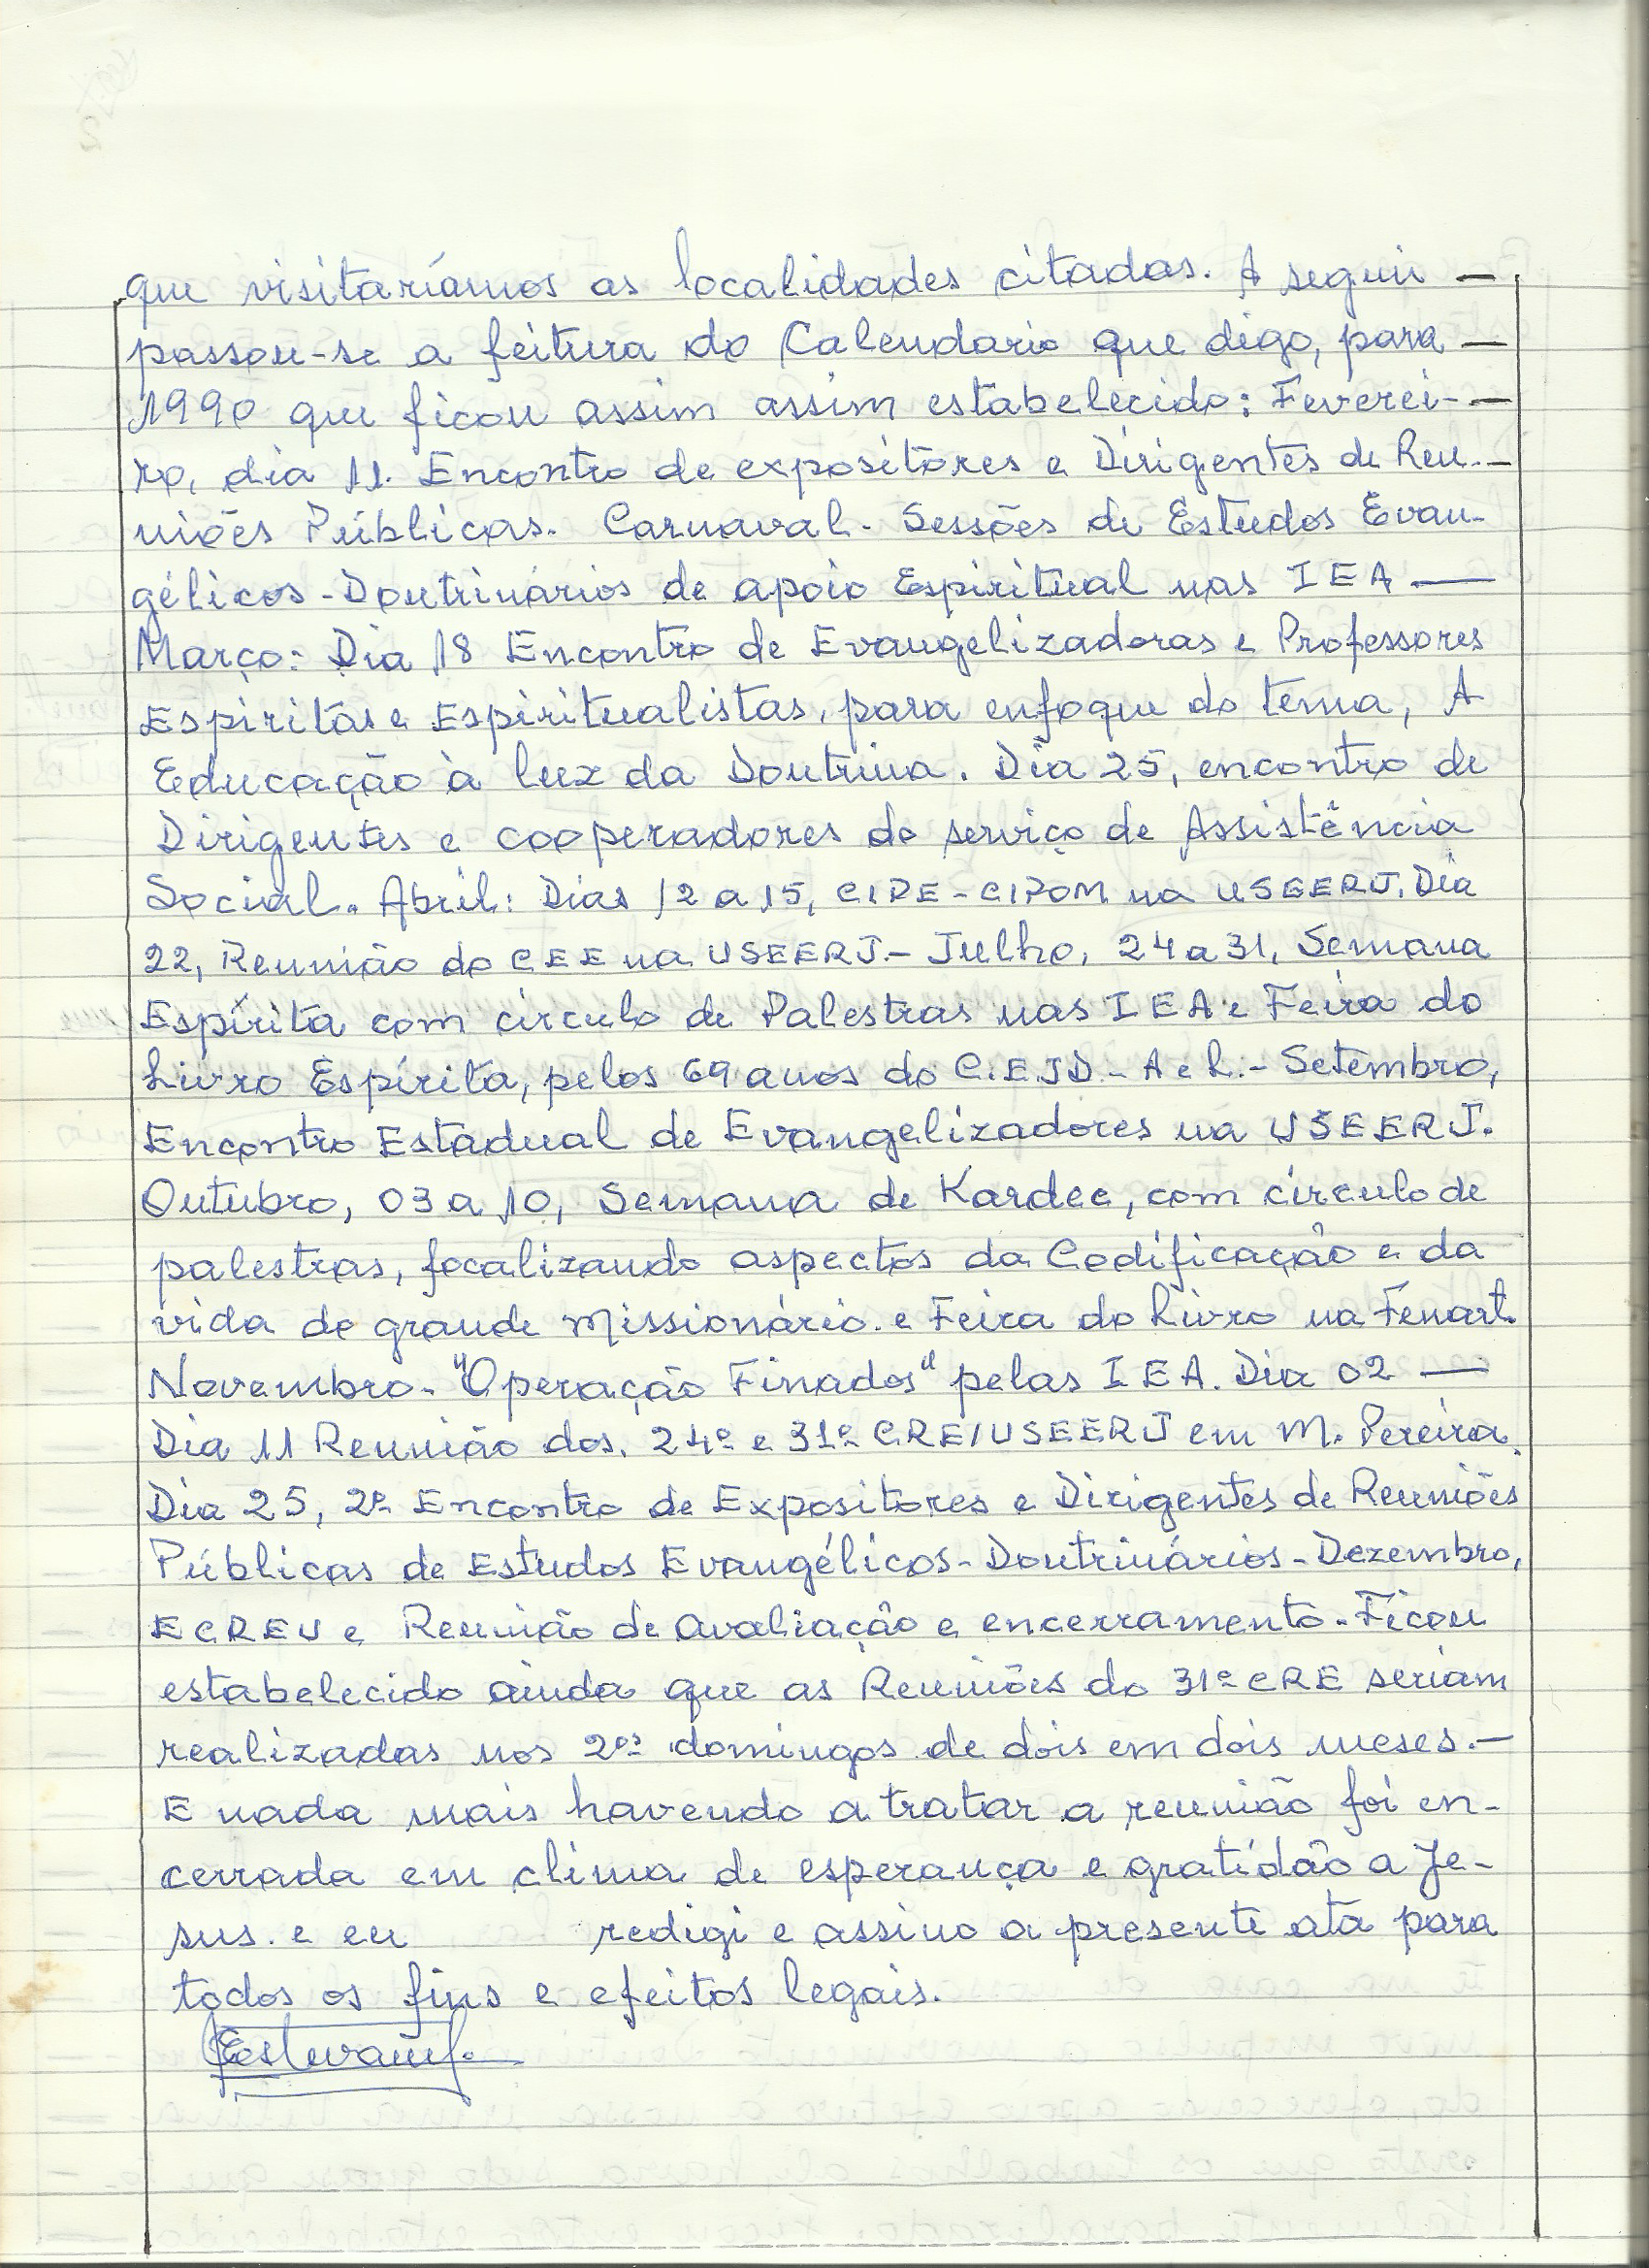 que visitaríamos as localidades citadas. A seguir —
passou-se a feitura do Calendario que digo, para —
1990 que ficou assim assim estabelecido: Feverei-—
ro, dia 11. Encontro de expositores e Dirigentes de Reu.—
niões Públicas. Carnaval - Sessões de Estudos Evan-
gélicos-Doutrinários de apoio Espiritual nas IEA —
Março: Dia 18 Encontro de Evangelizadoras e Professores
Espíritas e Espiritualistas, para enfoque do tema, A
Educação à luz da Doutrina. Dia 25, encontro de
Dirigentes e cooperadores do serviço de Assistência
Social. Abril: Dias 12 a 15, CIPE-CIPOM na USEERJ. Dia
22, Reunião do CEE na USEERJ.- Julho, 24 a 31, Semana
Espírita com círculo de Palestras nas IEA e Feira do
Livro Espírita, pelos 69 anos do C.E.JD.- A e L.- Setembro,
Encontro Estadual de Evangelizadores na USEERJ.
Outubro, 03 a 10, Semana de Kardec, com círculo de
palestras, focalizando aspectos da Codificação e da
vida do grande Missionário. e Feira do Livro na Fenart.
Novembro- "Operação Finados" pelas IEA. Dia 02 —
Dia 11 Reunião dos. 24º e 31º CRE/USEERJ em M. Pereira.
Dia 25, 2º Encontro de Expositores e Dirigentes de Reuniões
Públicas de Estudos Evangélicos-Doutrinários-Dezembro,
ECREU e Reunião de Avaliação e encerramento-Ficou
estabelecido ainda que as Reuniões do 31º CRE seriam
realizadas nos 2ºs domingos de dois em dois meses.—
E nada mais havendo a tratar a reunião foi en-
cerrada em clima de esperança e gratidão a Je-
sus. e eu redigi e assino a presente ata para
todos os fins e efeitos legais.